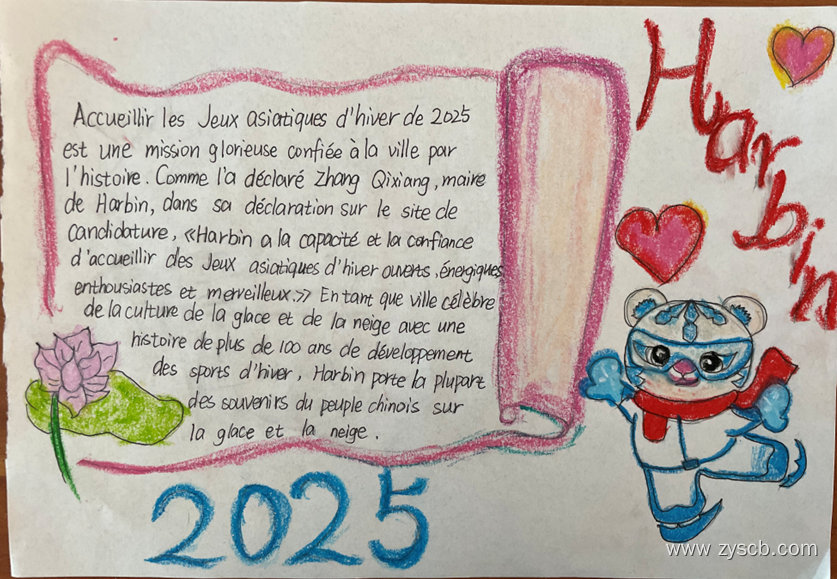 Accueillir les Jeux asiatiques d'hiver de 2025
est une mission glorieuse confiée à la ville par
l'histoire. Comme l'a déclaré Zhang Qixiang, maire
de Harbin, dans sa déclaration sur le site de
candidature, «Harbin a la capacité et la confiance
d'accueillir des Jeux asiatiques d'hiver ouverts, énergiques,
enthousiastes et merveilleux.» En tant que ville célèbre
de la culture de la glace et de la neige avec une
histoire de plus de 100 ans de développement
des sports d'hiver, Harbin porte la plupart
des souvenirs du peuple chinois sur
la glace et la neige.
2025
Harbin
www.zyscb.com